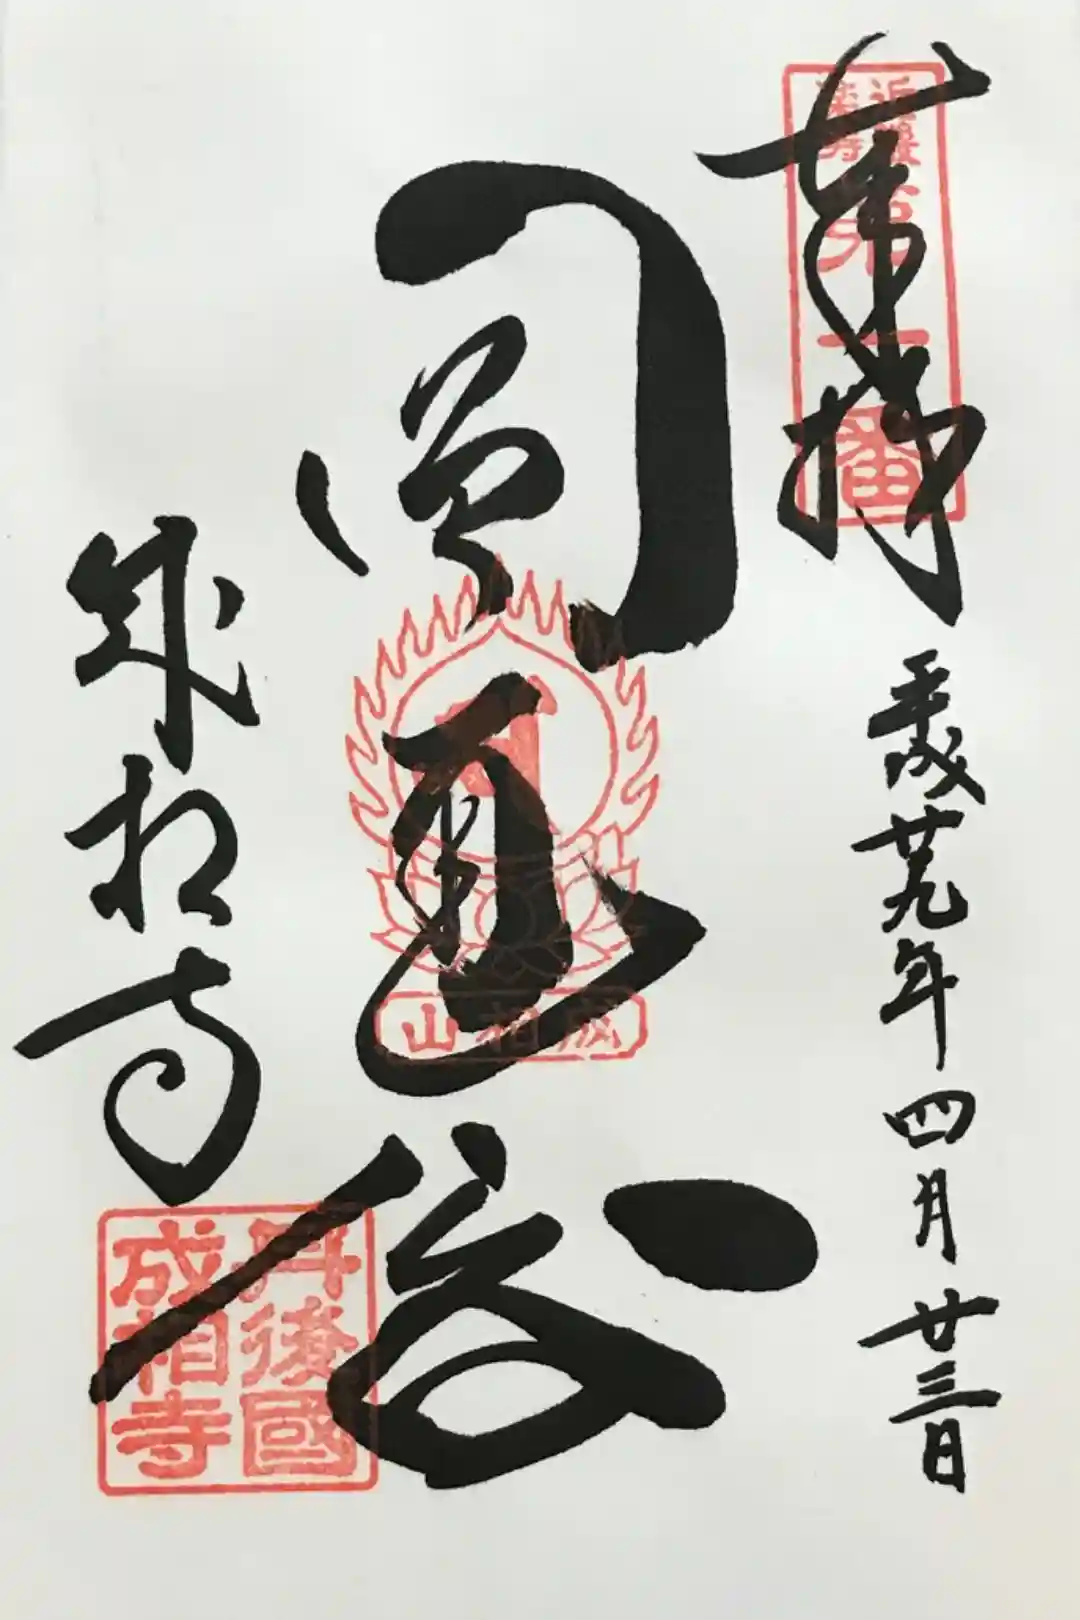 奉拝
近畿楽寿
第一番
平成廿九年四月廿三日
圓通閣
成相山
成相寺
丹後國
成相寺